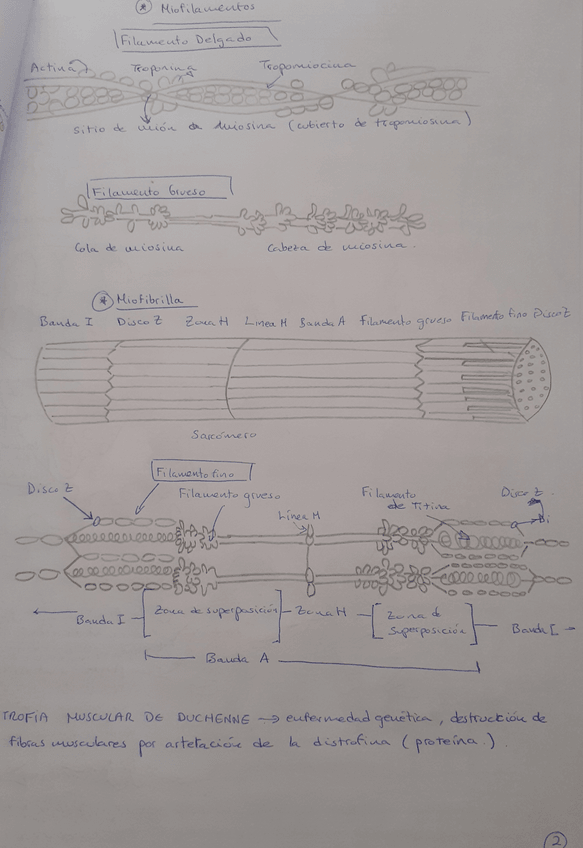 * Miofilamentos
Filamento Delgado
Actina Troponina Tropomiocina
sitio de unión de Miosina (cubierto de tropomiosina)
Filamento Grueso
Cola de miosina Cabeza de miosina.
* Miofibrilla
Banda I Disco Z Zona H Linea M Banda A filamento grueso Filamento fino Disco Z
Sarcómero
Filamento fino
Disco Z Filamento grueso Filamento de Titina Disco Z.
Línea M
Banda I Zona de superposición Zona H Zona de Superposición Banda I
Banda A
TROFIA MUSCULAR DE DUCHENNE → enfermedad genética, destrucción de
fibras musculares por artefación de la distrofina (proteína.).
2